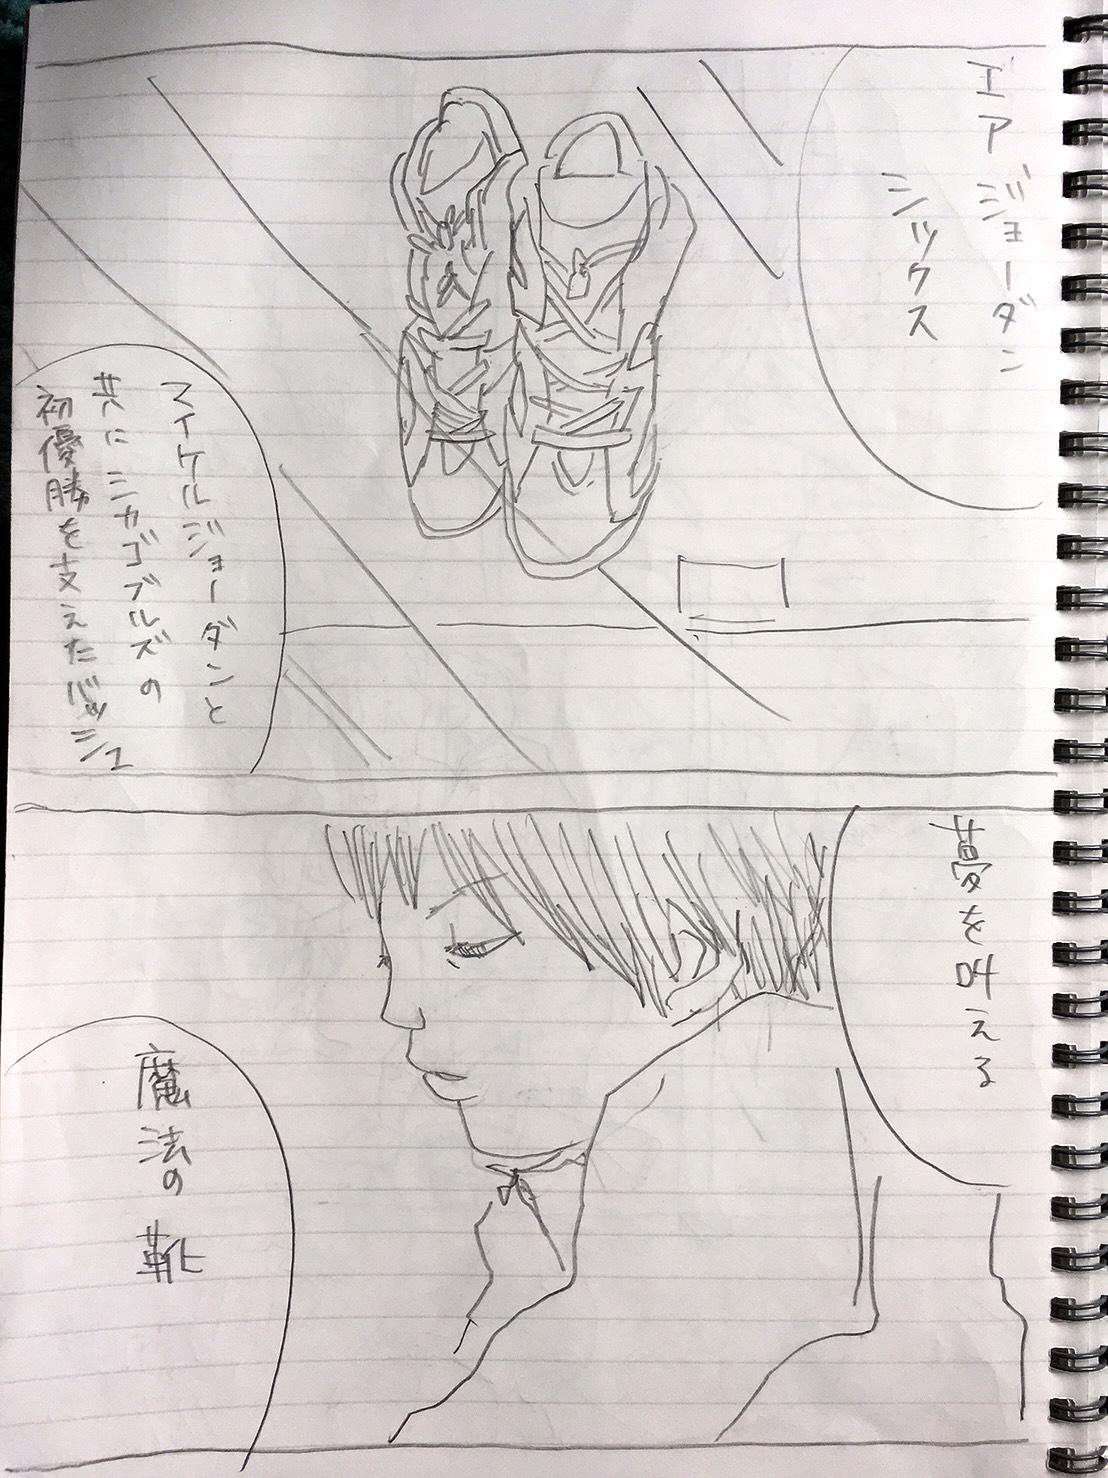 エアジョーダン
シックス
マイケルジョーダンと
共にシカゴブルズの
初優勝を支えたバッシュ
夢を叶える
魔法の靴